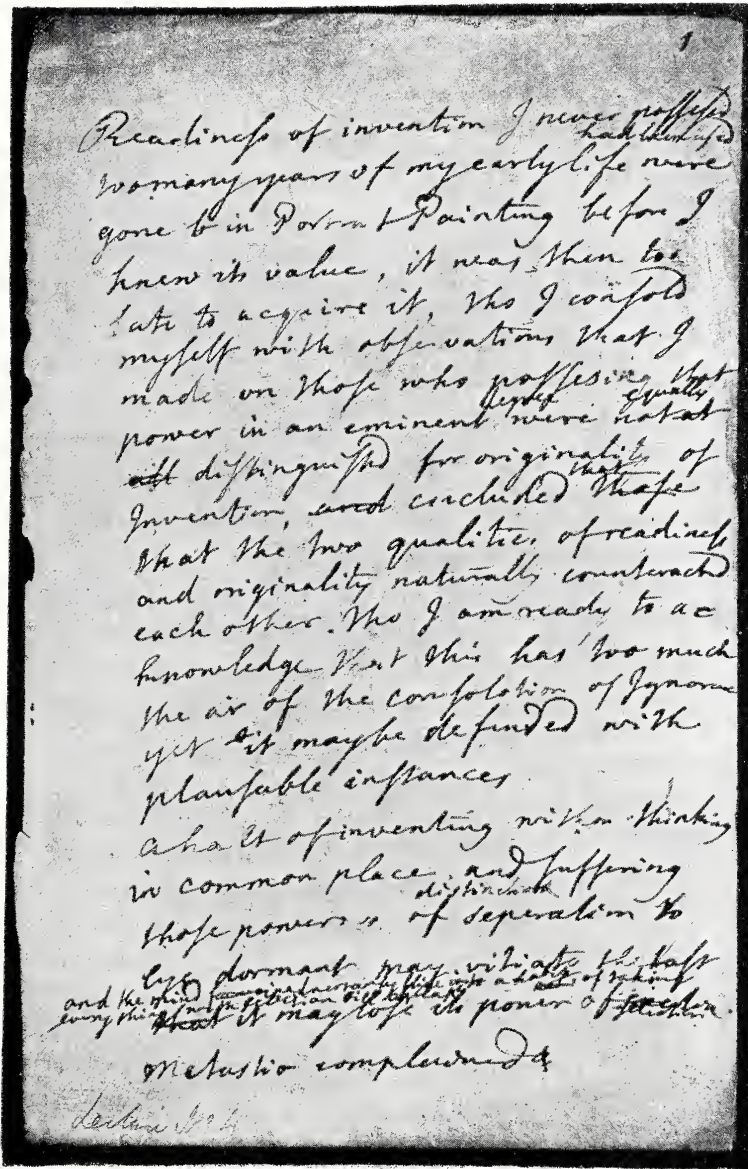 1
Readiness of invention I never possessed
had been used
too many years of my early life were
gone b in Portrat Painting before I
knew its value, it was then too
late to acquire it, tho I consold
myself with observations that I
made on those who possesing that
degree equally
power in an eminent were not at
all distinguished for originality of
that
Invention, and concluded those
that the two qualities of readiness
and originality naturally counteracted
each other. tho I am ready to ac
knowledge that this has too much
the air of the consolation of Ignorance
yet it may be defended with
plausable instances
a habit of inventing without thinking
in common place, and suffering
distinction
those powers of seperation to
lye dormant may vitiate the tast
and the mind into a habit of taking
every thing with selection
that it may lose its power of selection.
Metastio complained
Lecture No 4